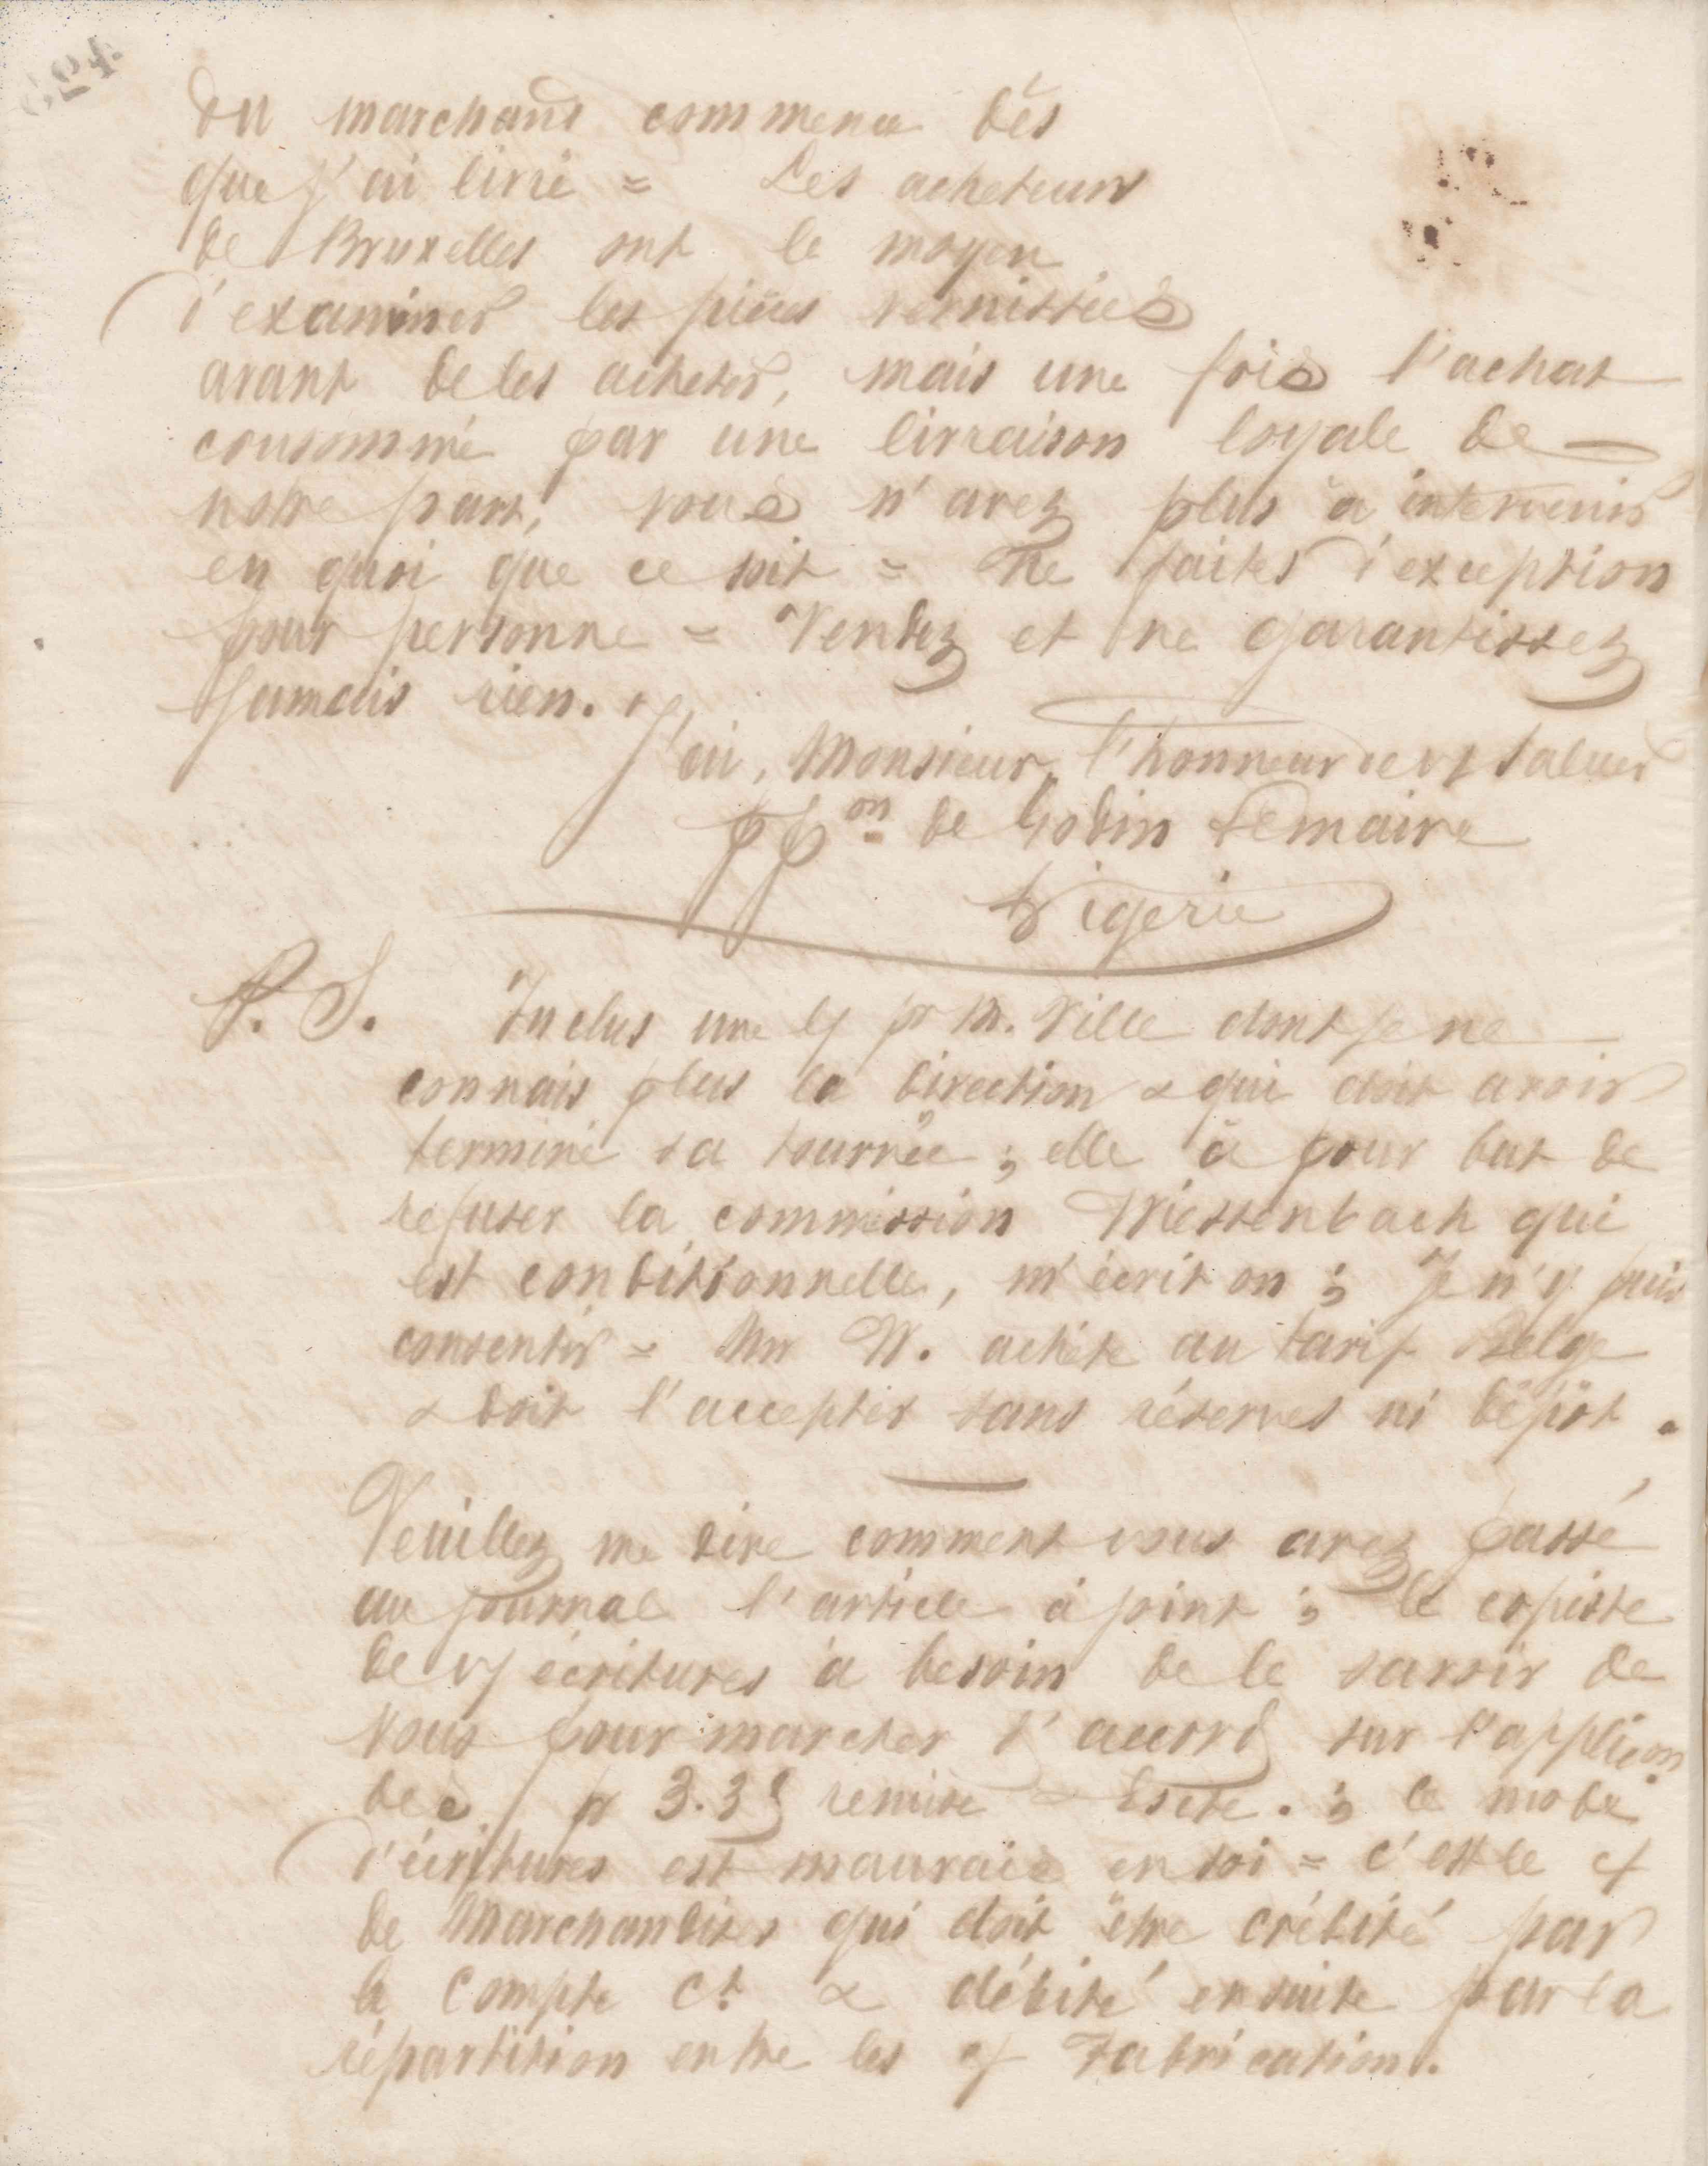 du marchand commence dès
que j'ai livré = Les acheteurs
de Bruxelles ont le moyen
d'examiner les pièces vernissées
avant de les acheter, mais une fois l'achat
consommé par une livraison loyale de
notre part, vous n'avez plus à intervenir
en quoi que ce soit = Ne faites d'exception
pour personne = Vendez et ne garantissez
jamais rien.
J'ai, Monsieur, l'honneur de vs saluer
pp on de Godin Lemaire
Rigerie
P. S. Inclus une l/ pr M. Ville dont je ne
connais plus la direction & qui doit avoir
terminé sa tournée ; elle a pour but de
refuser la commission Wiessenbach qui
est conditionnelle, m'écrit on ; Je n'y puis
consentir = Mr W. achète au tarif Belge
& doit l'accepter sans réserves ni dépôt.
Veuillez me dire comment vous avez passé
au journal l'article ci joint ; le copiste
de v/ écritures a besoin de le savoir de
vous pour marcher d'accord sur l'applicon
des pr 3.35 remise & Escte. ; le mode
d'écritures est mauvais en soi = c'est le c/
de Marchandises qui doit être crédité par
le Compte Ct & débité ensuite par la
répartition entre les c/ Fabrication.